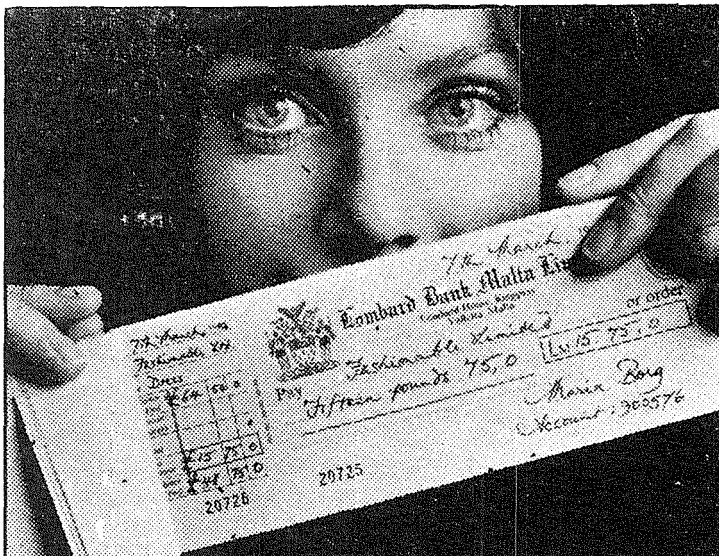 7th March
Lombard Bank Malta
Lombard House,
Valletta Malta
Pay Fashionable Limited or order
Fifteen pounds 75,0
Lm 15 75,0
Maria Borg
Account: 302576
20725
7th March
Fashionable Ltd
Dress
64 50 0
15 75 0
48 75 0
20726